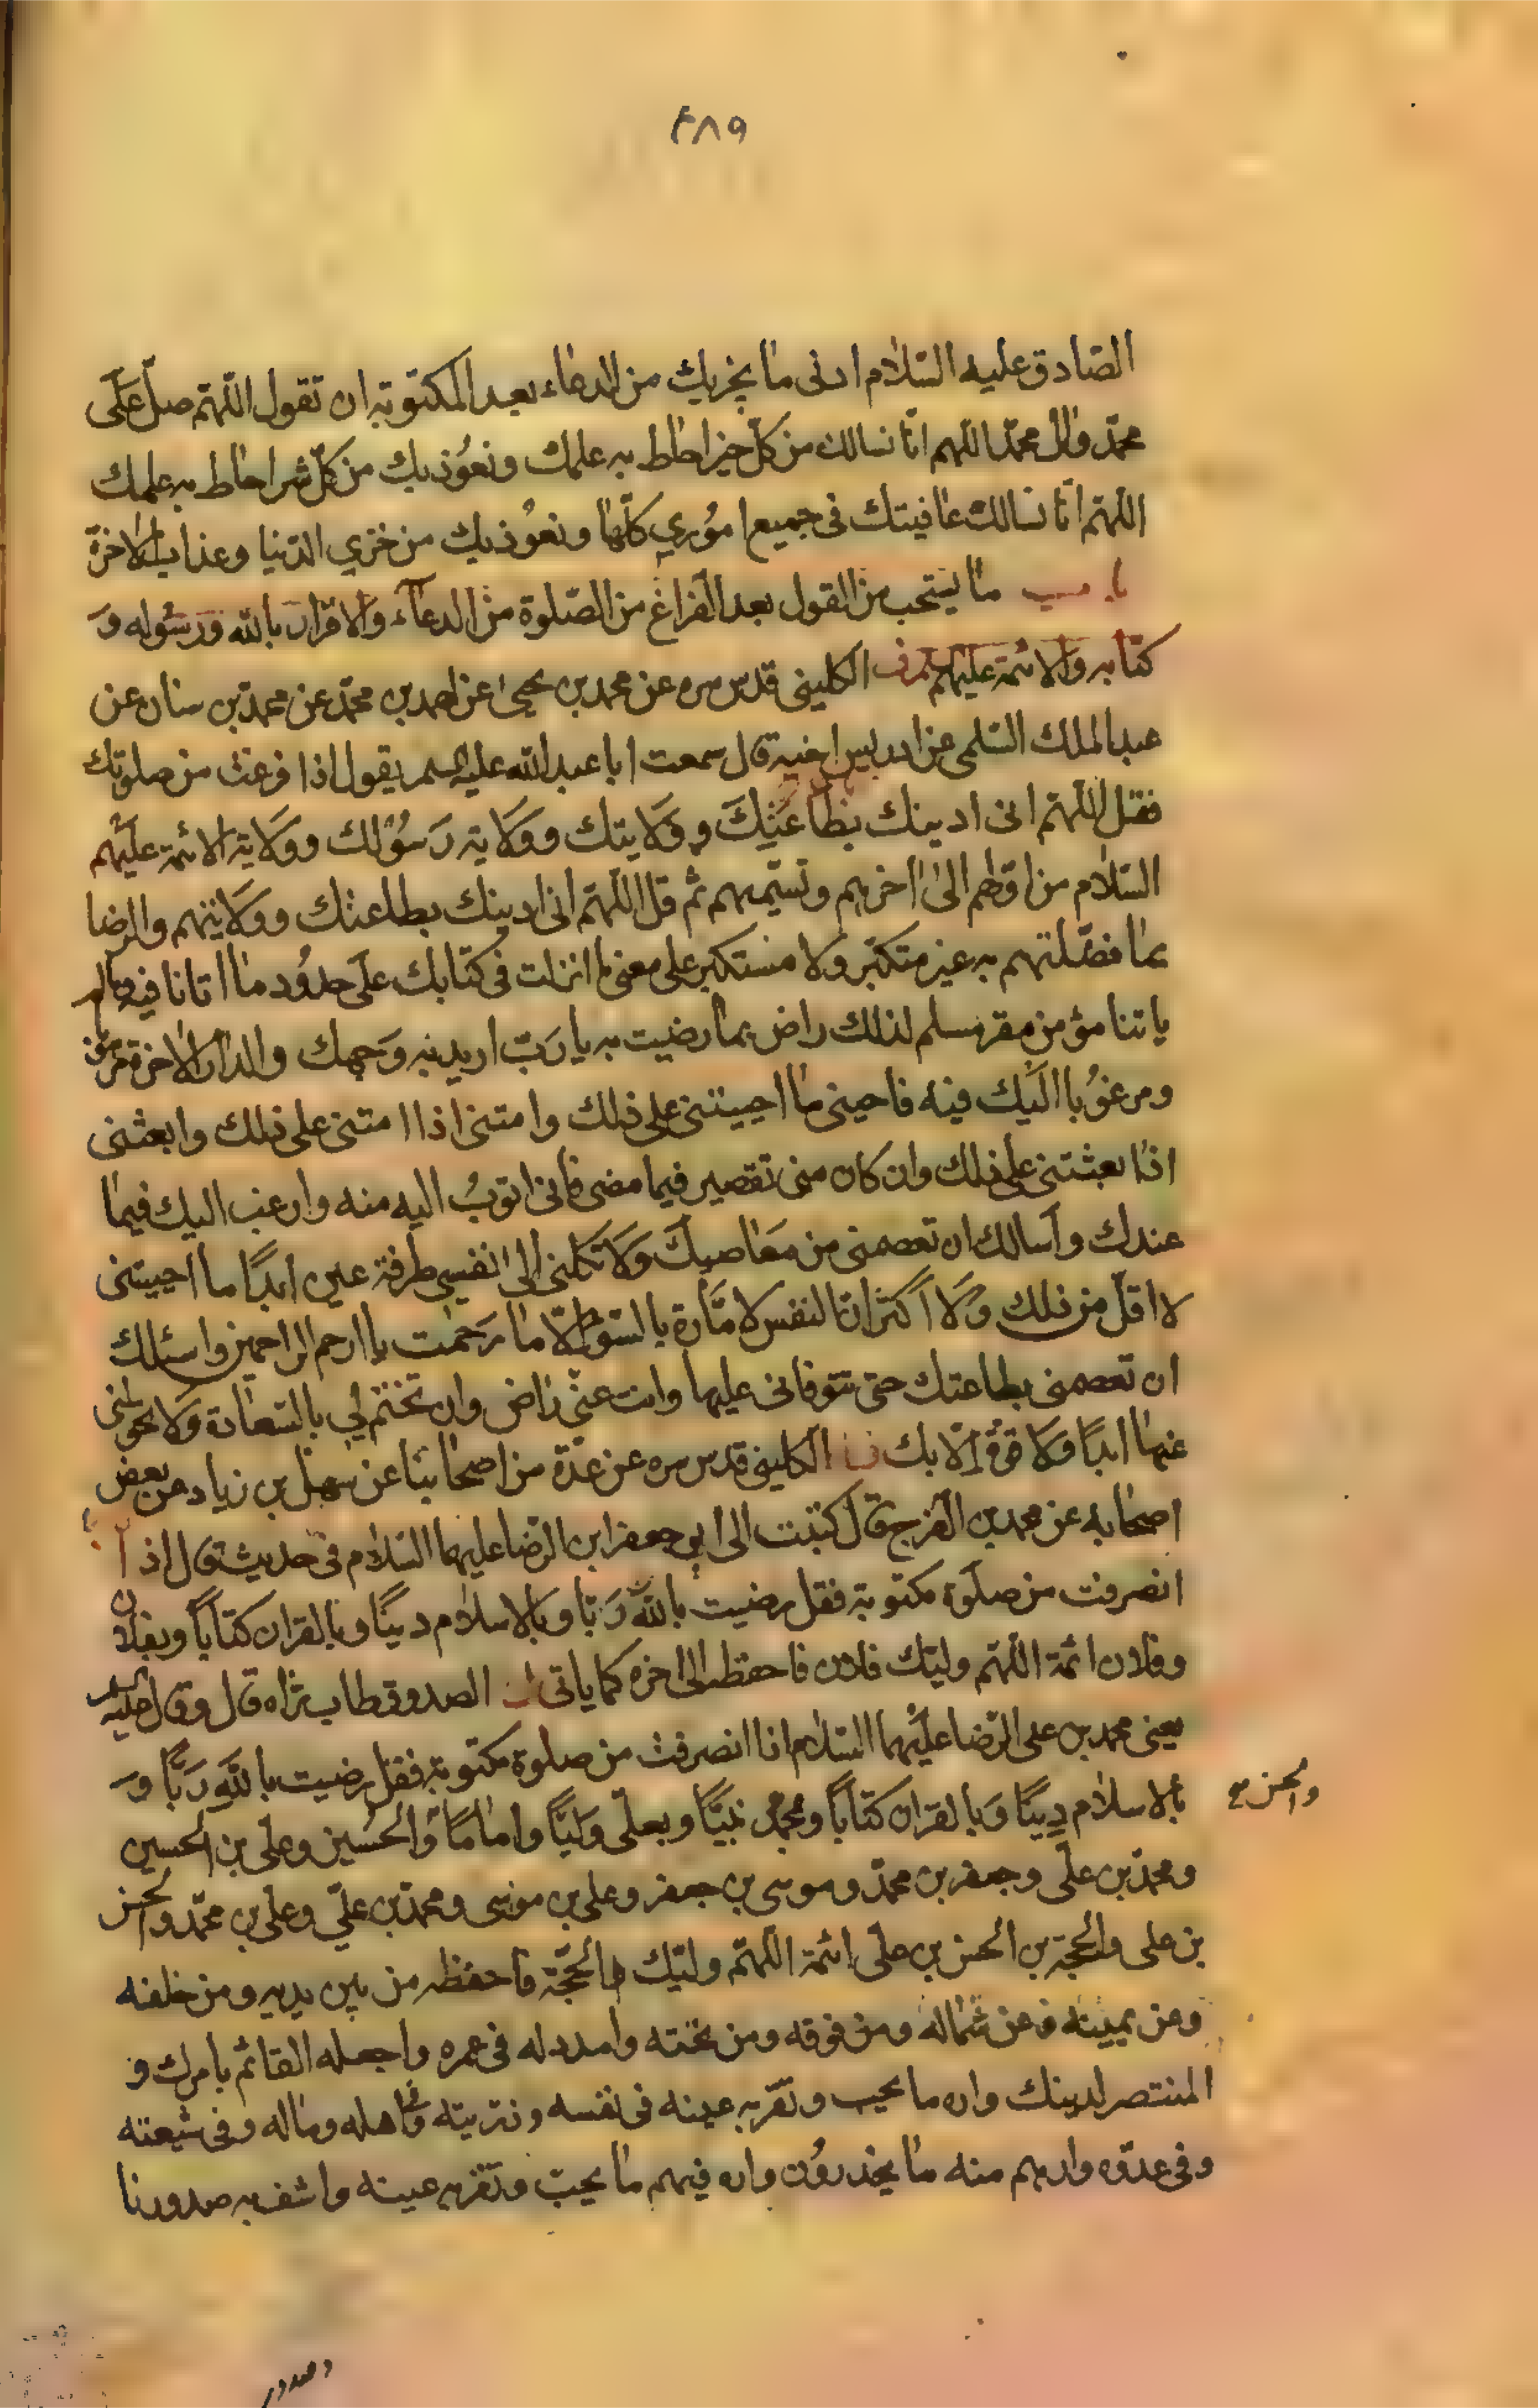 ۴۸۹
الصّادق عليه السّلام ادنى ما يجزيك من الدعاء بعد المكتوبة ان تقول اللّهمّ صلّ على
محمّد وال محمّد اللهم انّا نسالك من كلّ خير احاط به علمك ونعُوذ بك من كلّ شر احاط به علمك
اللهمّ انّا نسالك عافيتك فى جميع امُوري كلّها ونعُوذ بك من خزي الدّنيا وعذاب الاخرة
باب ما يستحب من القول بعد الفراغ من الصّلوة من الدعاء والاقرار بالله ورسُوله وَ
كتابه والائمة عليهم الكلينى قدس سره عن محمد بن يحيى عن احمد بن محمّد عن محمّد بن سنان عن
عبد الملك السّلمى عن ادريس اخيه قال سمعت ابا عبد الله عليه السلم يقول اذا فرغت من صلوتك
فقل اللّهمّ انى ادينك بطاعتِكَ وولايتك وولاية رَسُولك وولاية الائمة عليهم
السّلام من اوّلهم الى اخرهم وتسمّيهم ثم قل اللّهمّ انى ادينك بطاعتك وولايتهم والرضا
بما فضّلتهم به غير متكبّر ولا مستكبر على معنى ما انزلت فى كتابك على حدُود ما اتانا فيه وما لم
ياتنا مؤمن مقر مسلم لذلك راض بما رضيت به يا رَبّ اريد به وَجهك والدار الاخرة مرهوبا
ومرغُوبا اليك فيه فاحينى ما احييتنى على ذلك وامتنى اذا امتنى على ذلك وابعثنى
اذا بعثتنى على ذلك وان كان منى تقصير فيما مضى فانى اتوبُ اليه منه وارغب اليك فيما
عندك واسالك ان تعصمنى من مَعَاصيكَ وَلَا تكلنى الى نفسى طرفة عين ابدًا ما احييتنى
لا اقلّ من ذلك وَلَا اكثر ان النفس لامّارة بالسّوء الّا ما رَحمت يا ارحم الراحمين واسئلك
ان تعصمنى بطاعتك حتى تتوفانى عليها وانت عنّي راض وان تختم لي بالسّعادة وَلا تحولنى
عنها ابدًا ولا قوّة الّا بك الكلينى قدس سره عن عدّة من اصحابنا عن سهل بن زياد عن بعض
اصحابه عن محمد بن الفرج قال كتبت الى ابى جعفر ابن الرّضا عليهما السّلام فى حديث قال اذا
انصرفت من صلوة مكتوبة فقل رضيت بالله رَبّا وبالاسلام دينًا وبالقران كتابًا وبفلان
وفلان ائمة اللّهم وليّك فلان فاحفظه الى اخره كما ياتى الصدوق طاب ثراه قال وقال عليه السلم
يعنى محمد بن على الرّضا عليهما السّلام اذا انصرفت من صلوة مكتوبة فقل رضيت بالله رَبًّا وَ
بالاسلام دِينًا وَبالقران كتابًا وبمحمد نبيًّا وبعلّى وَليًّا وامامًا والحُسَين وعلى بن الحسين
والحسن صح
ومحمّد بن علّى وجعفر بن محمّد وموسى بن جعفر وعلى بن موسى ومحمّد بن علّي وعلى بن محمّد والحسن
بن على والحجة بن الحسن بن علّى ائمّة اللّهمّ وليّك الحجّة فاحفظه من بين يديه ومن خلفه
وعن يمينه وعن شماله ومن فوقه ومن تحته وامدد له فى عمره واجعله القائم بامرك و
المنتصر لدينك واره ما يحب وتقرّ به عينه فى نفسه وذرّيته وفى اهله وماله وفى شيعته
وفى عدوّه وارهم منه ما يحذرُون واره فيهم ما يحبّ وتقرّ به عينه واشف به صدورنا
وصدور